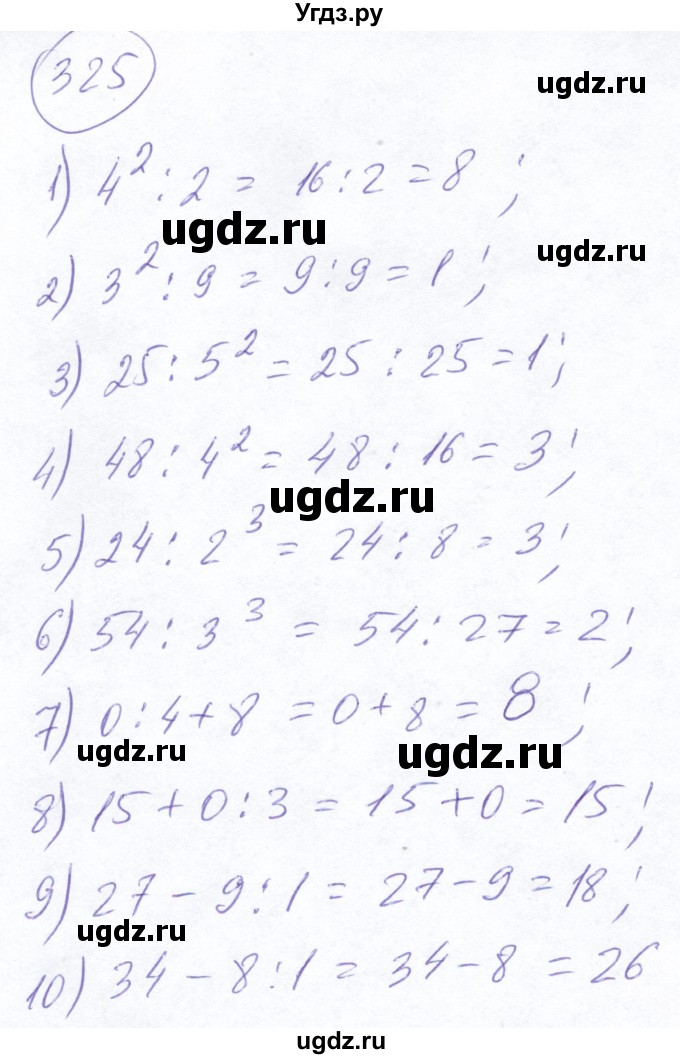 Угдз.ру
325
ugdz.ru
1) 4² : 2 = 16 : 2 = 8 ;
ugdz.ru
ugdz.ru
2) 3² : 9 = 9 : 9 = 1 ;
3) 25 : 5² = 25 : 25 = 1 ;
4) 48 : 4² = 48 : 16 = 3 ;
ugdz.ru
5) 24 : 2³ = 24 : 8 = 3 ;
6) 54 : 3³ = 54 : 27 = 2 ;
7) 0 : 4 + 8 = 0 + 8 = 8 ;
ugdz.ru
ugdz.ru
8) 15 + 0 : 3 = 15 + 0 = 15 ;
9) 27 - 9 : 1 = 27 - 9 = 18 ;
ugdz.ru
10) 34 - 8 : 1 = 34 - 8 = 26
ugdz.ru